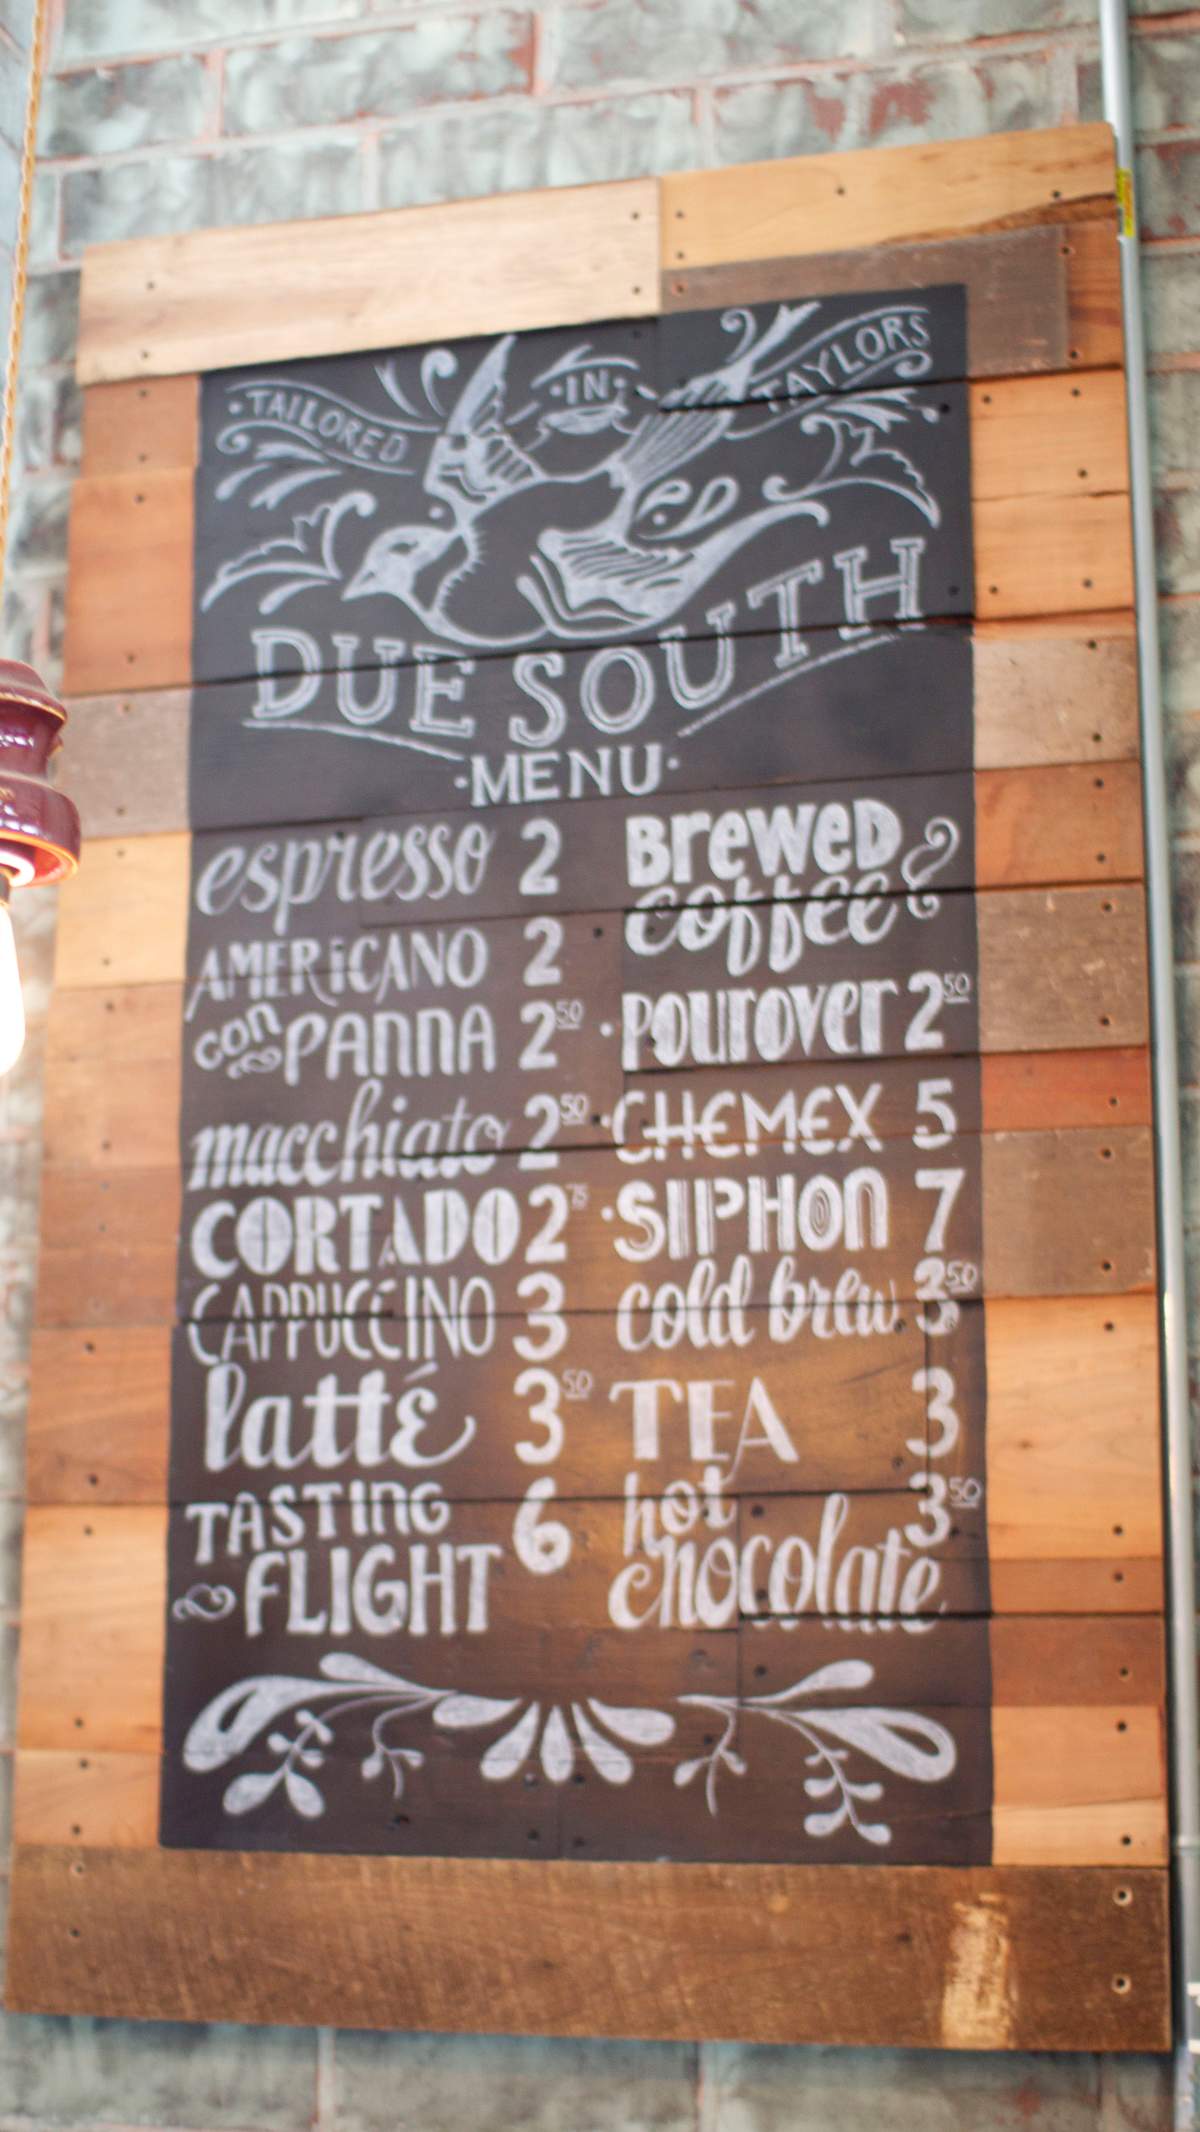 TAILORED
IN
TAYLORS
DUE SOUTH
·MENU·
espresso 2
AMERiCANO 2
con PANNA 2 50
macchiato 2 50
CORTADO 2 75
CAPPUCCINO 3
latté 3 50
TASTING
FLIGHT 6
Brewed
coffee
·POUROVER 2 50
·CHEMEX 5
·SIPHON 7
cold brew 3 50
TEA 3
hot
chocolate 3 50